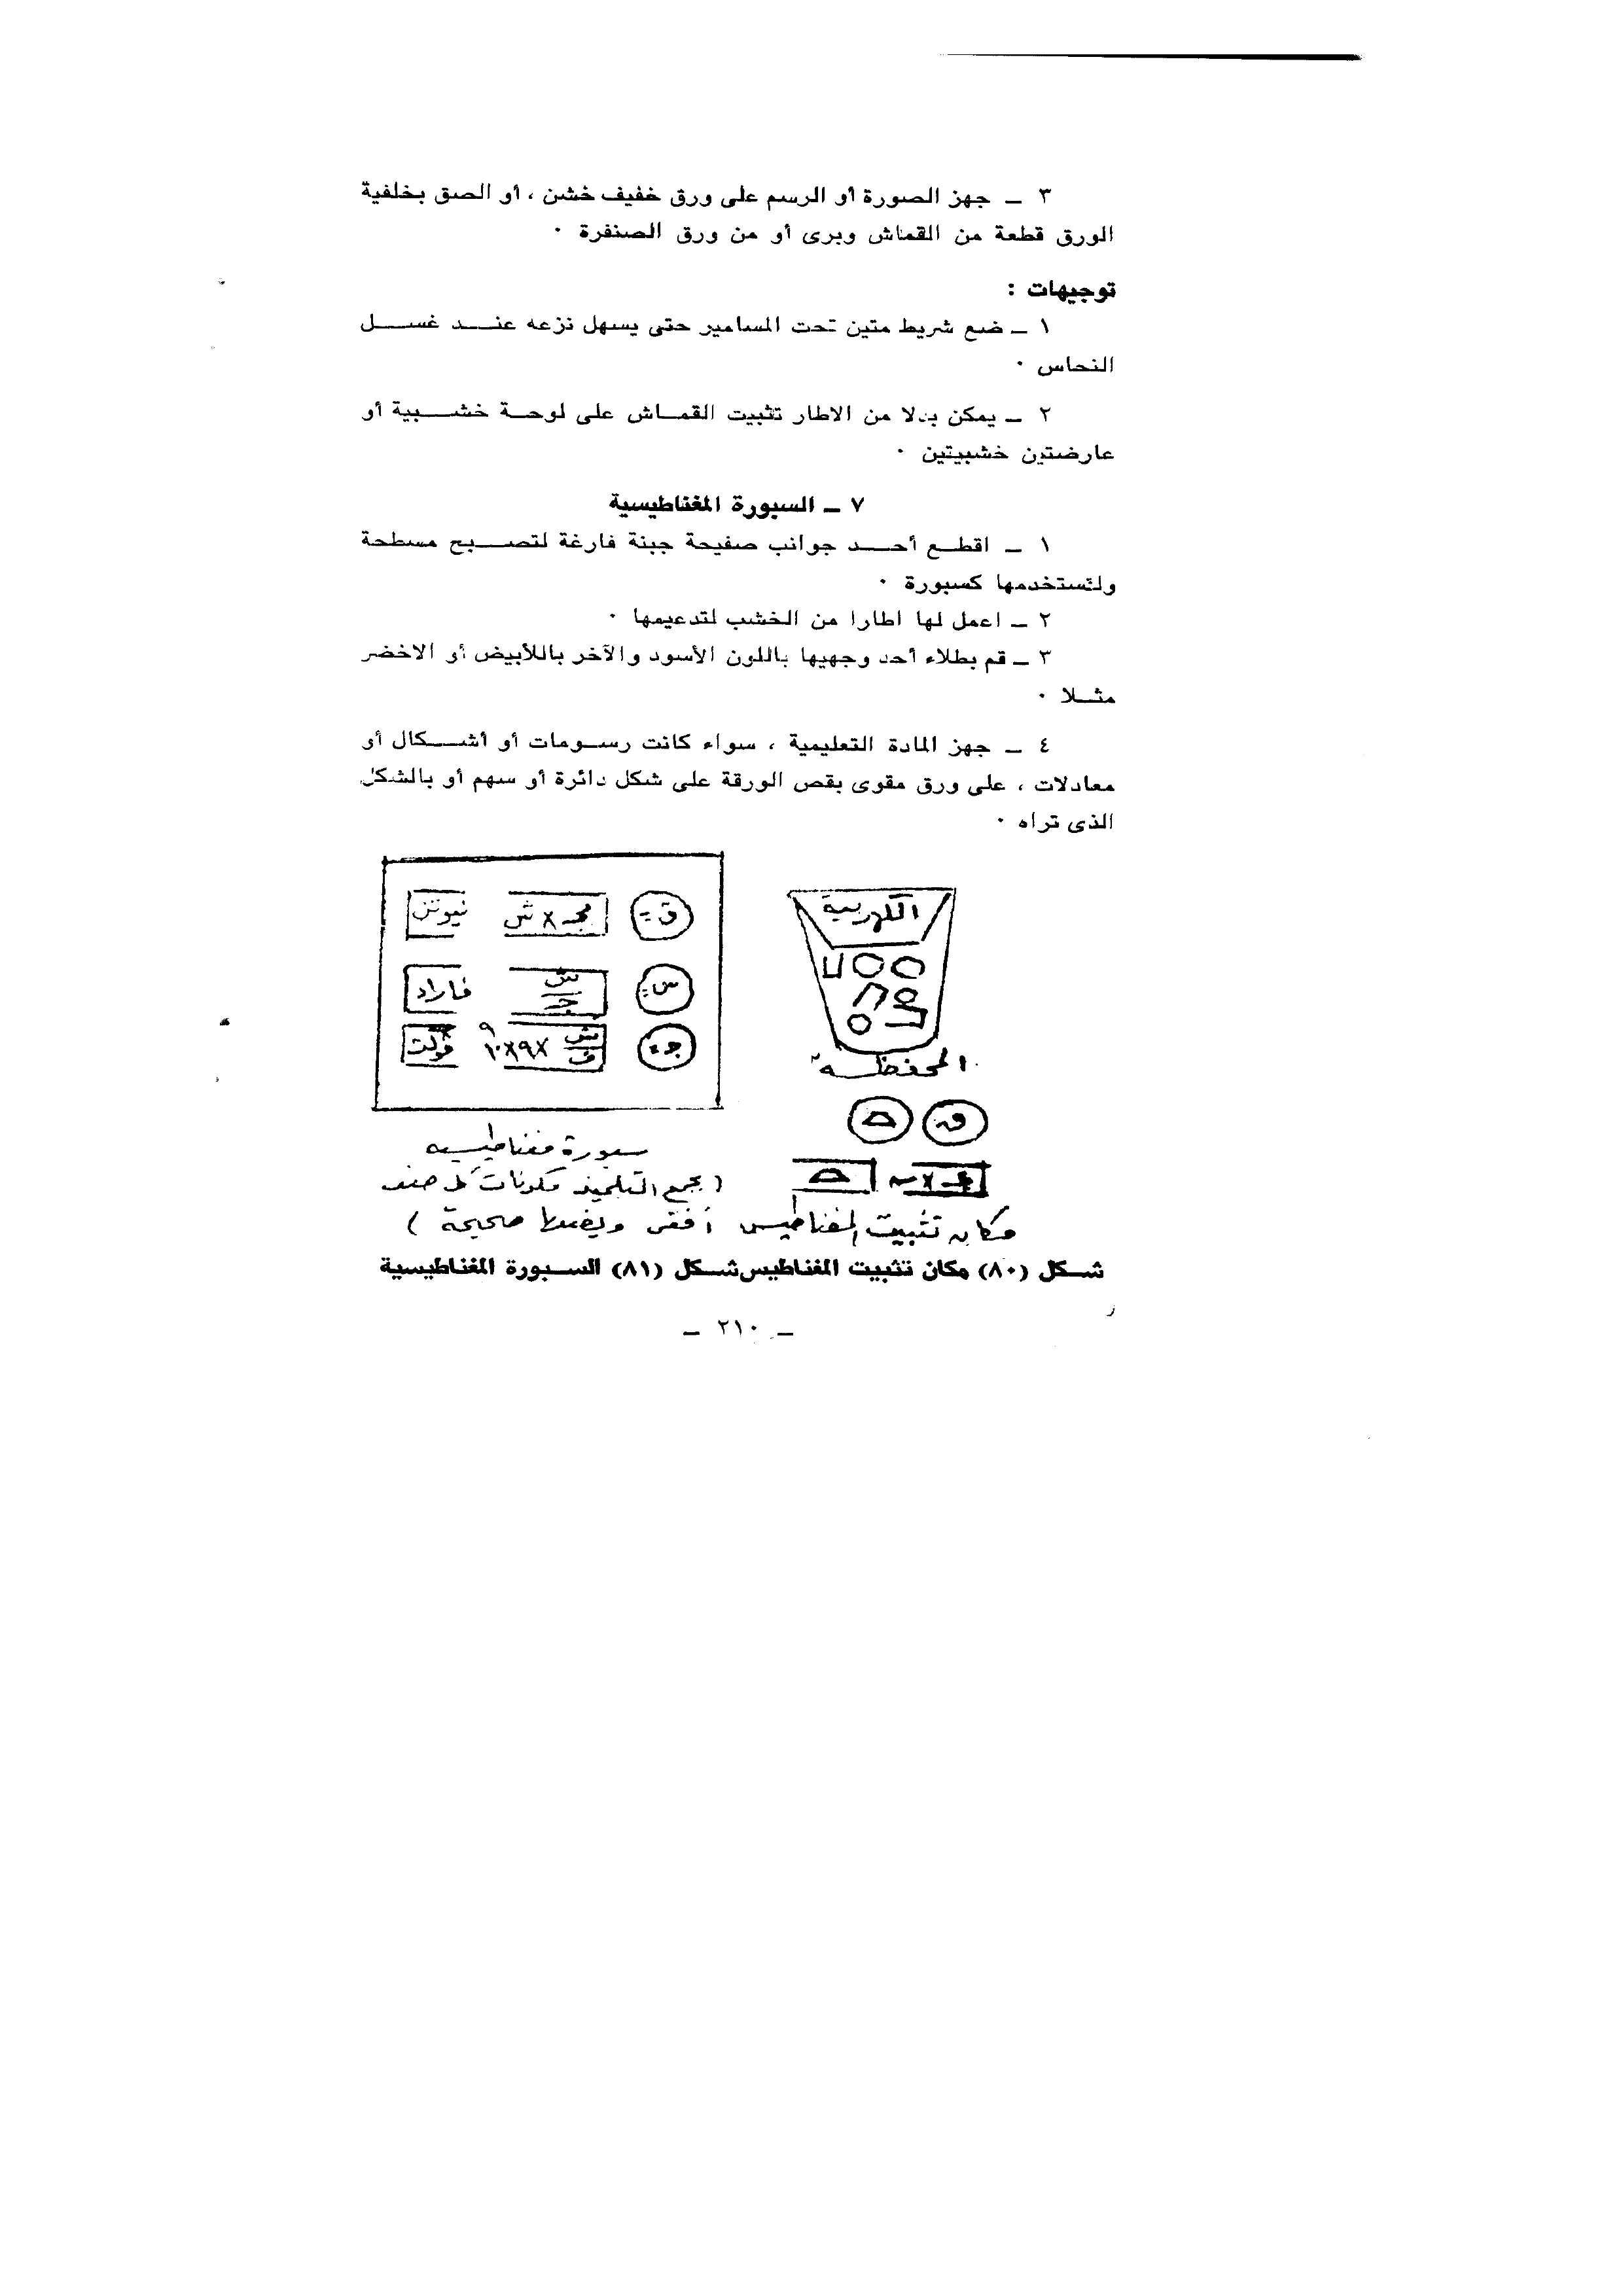 ٣ ــ جهز الصورة أو الرسم على ورق خفيف خشن ، أو الصق بخلفية
الورق قطعة من القماش وبرى أو من ورق الصنفرة ٠
توجيهات :
١ ــ ضع شريط متين تحت المسامير حتى يسهل نزعه عنــد غســل
النحاس ٠
٢ ــ يمكن بدلا من الاطار تثبيت القمــاش على لوحــة خشــبية أو
عارضتين خشبيتين ٠
٧ ــ السبورة المغناطيسية
١ ــ اقطــع أحــد جوانب صفيحة جبنة فارغة لتصــبح مسطحة
ولتستخدمها كسبورة ٠
٢ ــ اعمل لها اطارا من الخشب لتدعيمها ٠
٣ ــ قم بطلاء أحد وجهيها باللون الأسود والآخر باللأبيض أو الاخضر
مثــلا ٠
٤ ــ جهز المادة التعليمية ، سواء كانت رســومات أو أشــكال أو
معادلات ، على ورق مقوى بقص الورقة على شكل دائرة أو سهم أو بالشكل
الذى تراه ٠
الكهربية
ق =
مجـ × ش
نيوتن
س =
ش
جـ
فاراد
جـ =
ش
ف
× ٩ × ١٠ ٩
فولت
المحفظة
سبورة مغناطيسيه
( يجمع التلميذ مكونات كل صنف
أفقى ويضعها صحيحة )
مكان تثبيت المغناطيس
شــكل (٨٠) مكان تثبيت المغناطيس
شــكل (٨١) الســبورة المغناطيسية
ــ ٢١٠ ــ